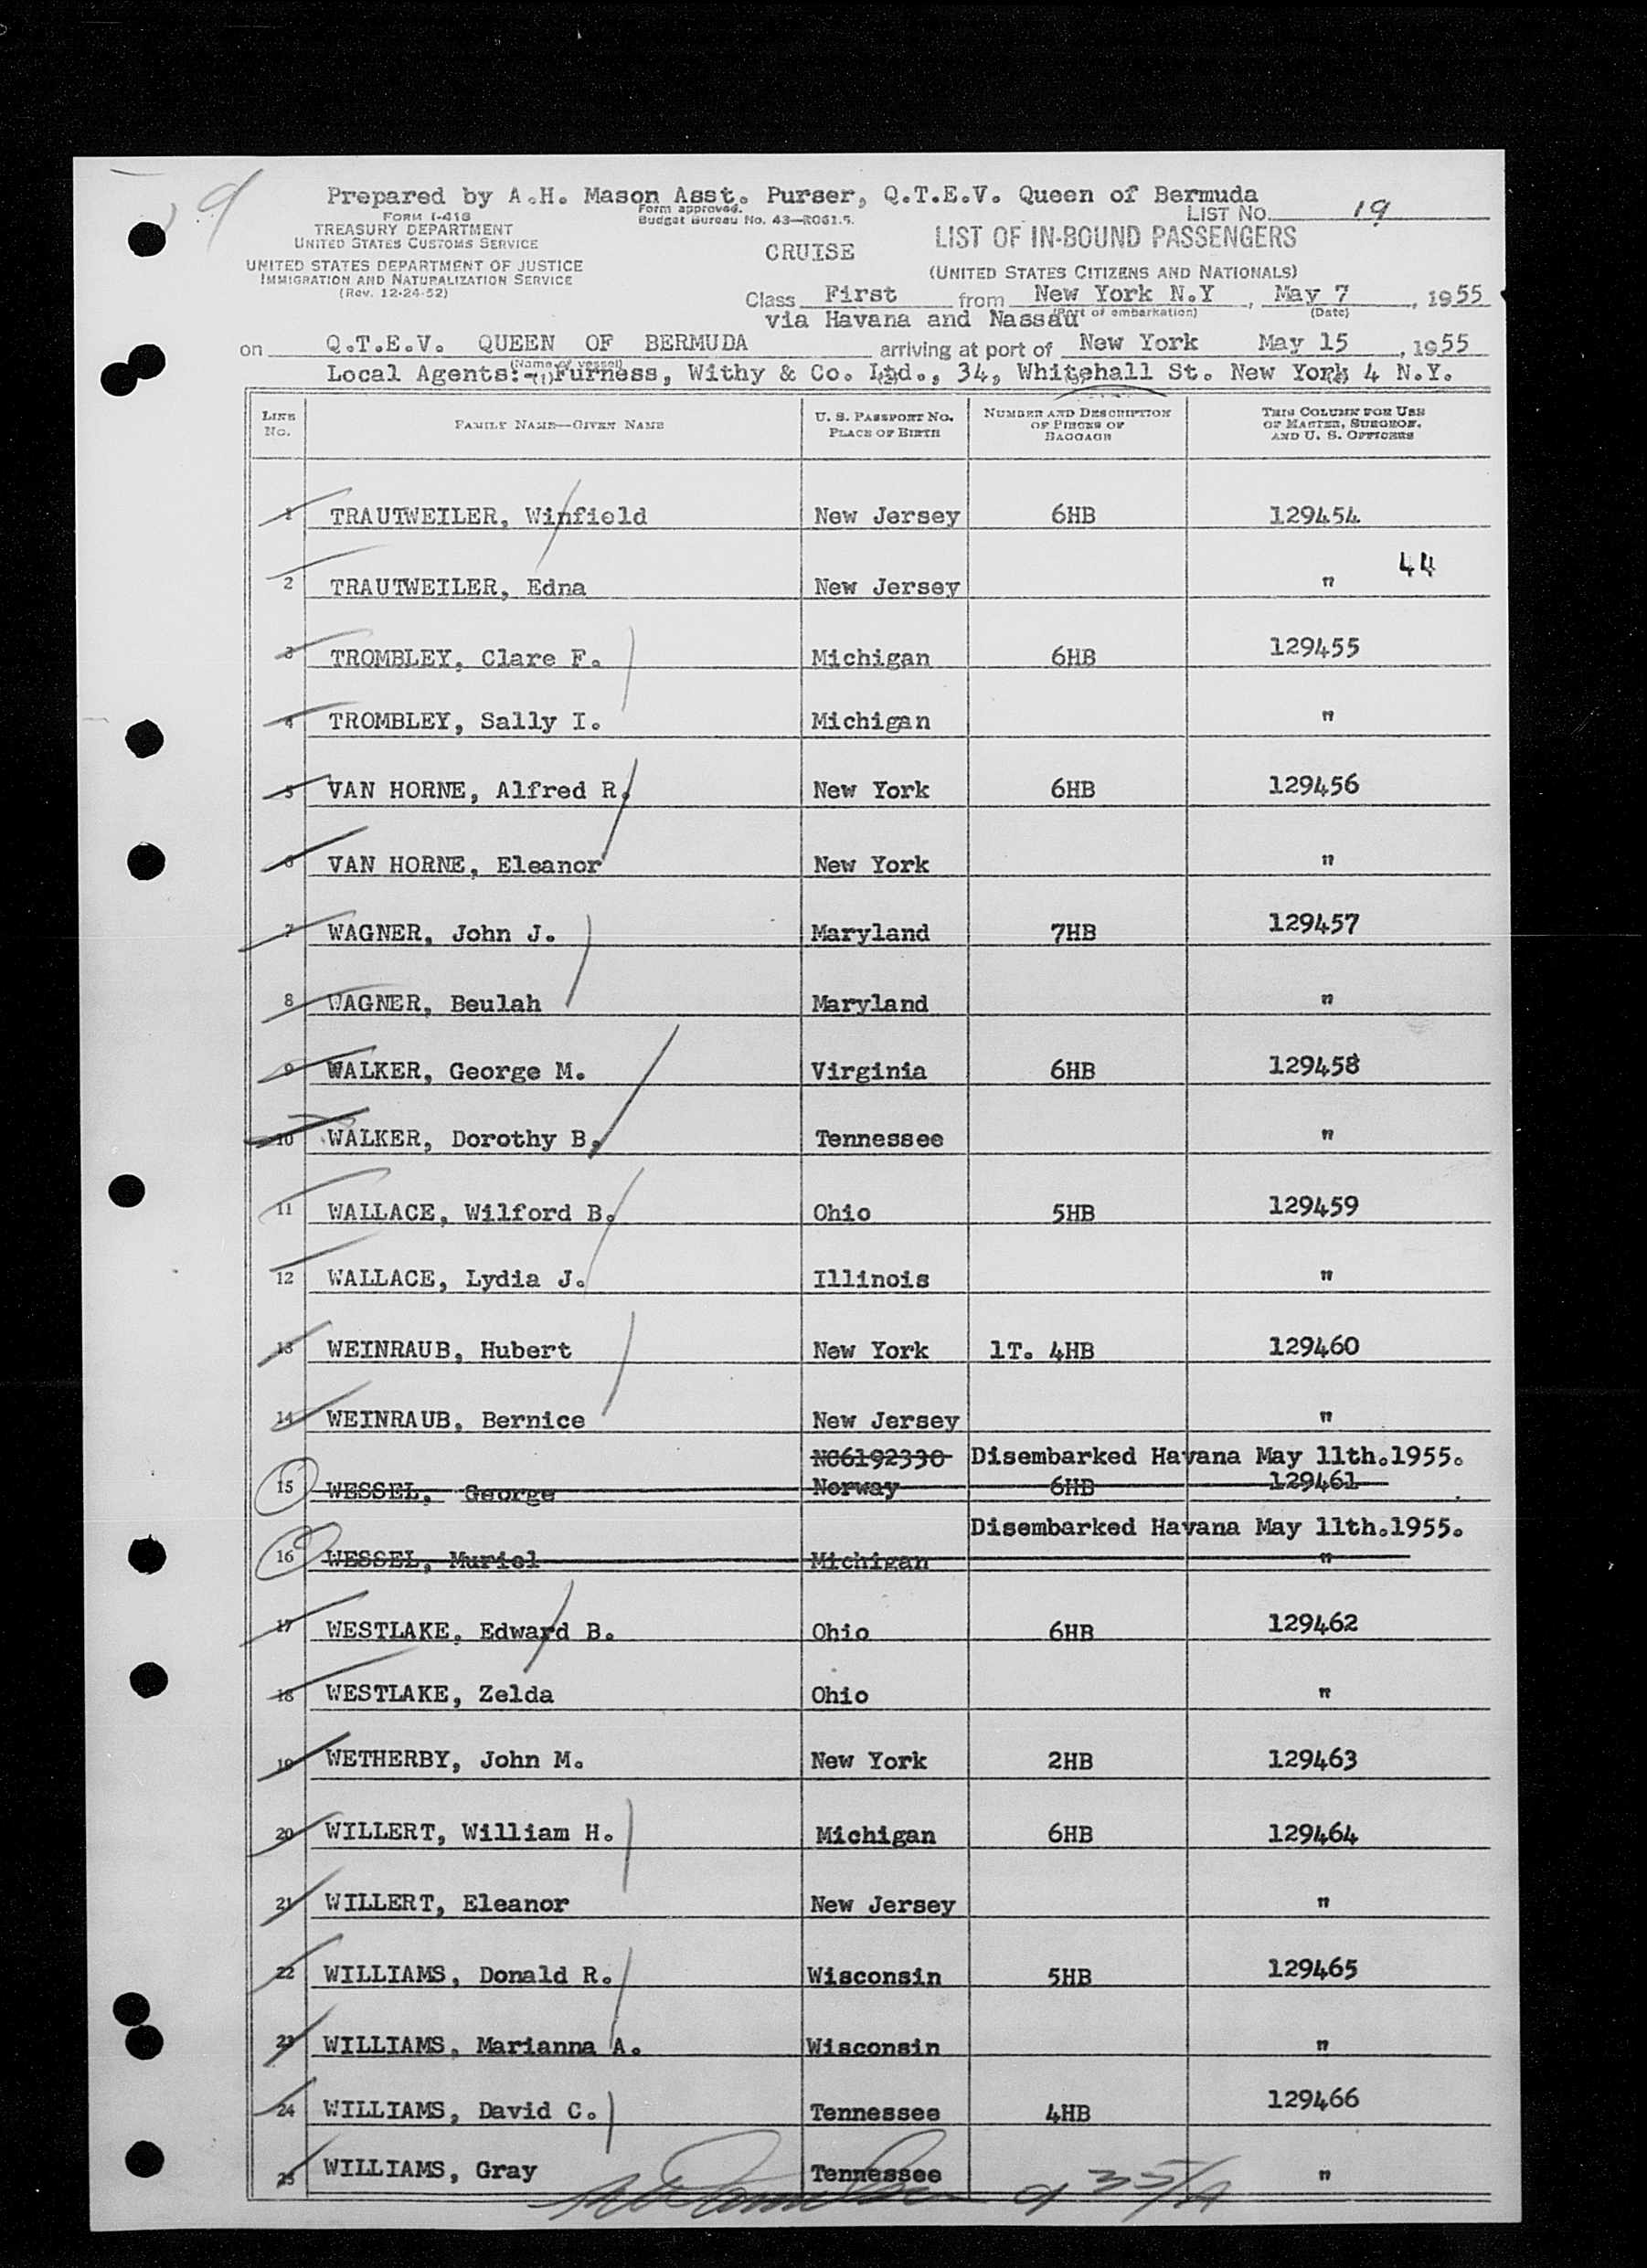 Prepared by A.H. Mason Asst. Purser, Q.T.E.V. Queen of Bermuda
FORM I-418
TREASURY DEPARTMENT
UNITED STATES CUSTOMS SERVICE
UNITED STATES DEPARTMENT OF JUSTICE
IMMIGRATION AND NATURALIZATION SERVICE
(Rev. 12-24-52)
Form approved.
Budget Bureau No. 43—R061.5.
LIST NO. 19
CRUISE
LIST OF IN-BOUND PASSENGERS
(UNITED STATES CITIZENS AND NATIONALS)
Class First from New York N.Y, May 7, 1955
(Port of embarkation) (Date)
via Havana and Nassau
on Q.T.E.V. QUEEN OF BERMUDA arriving at port of New York May 15, 1955
(Name of vessel)
Local Agents:- Furness, Withy & Co. Ltd., 34, Whitehall St. New York 4 N.Y.
LINE No. FAMILY NAME—GIVEN NAME U. S. PASSPORT NO. PLACE OF BIRTH NUMBER AND DESCRIPTION OF PIECES OF BAGGAGE THIS COLUMN FOR USE OF MASTER, SURGEON, AND U. S. OFFICERS
1 TRAUTWEILER, Winfield New Jersey 6HB 129454
44
2 TRAUTWEILER, Edna New Jersey "
3 TROMBLEY, Clare F. Michigan 6HB 129455
4 TROMBLEY, Sally I. Michigan "
5 VAN HORNE, Alfred R. New York 6HB 129456
6 VAN HORNE, Eleanor New York "
7 WAGNER, John J. Maryland 7HB 129457
8 WAGNER, Beulah Maryland "
9 WALKER, George M. Virginia 6HB 129458
10 WALKER, Dorothy B. Tennessee "
11 WALLACE, Wilford B. Ohio 5HB 129459
12 WALLACE, Lydia J. Illinois "
13 WEINRAUB, Hubert New York 1T. 4HB 129460
14 WEINRAUB, Bernice New Jersey "
NO6192330 Disembarked Havana May 11th.1955.
15 WESSEL, George Norway 6HB 129461
Disembarked Havana May 11th.1955.
16 WESSEL, Muriel Michigan "
17 WESTLAKE, Edward B. Ohio 6HB 129462
18 WESTLAKE, Zelda Ohio "
19 WETHERBY, John M. New York 2HB 129463
20 WILLERT, William H. Michigan 6HB 129464
21 WILLERT, Eleanor New Jersey "
22 WILLIAMS, Donald R. Wisconsin 5HB 129465
23 WILLIAMS, Marianna A. Wisconsin "
24 WILLIAMS, David C. Tennessee 4HB 129466
25 WILLIAMS, Gray Tennessee "